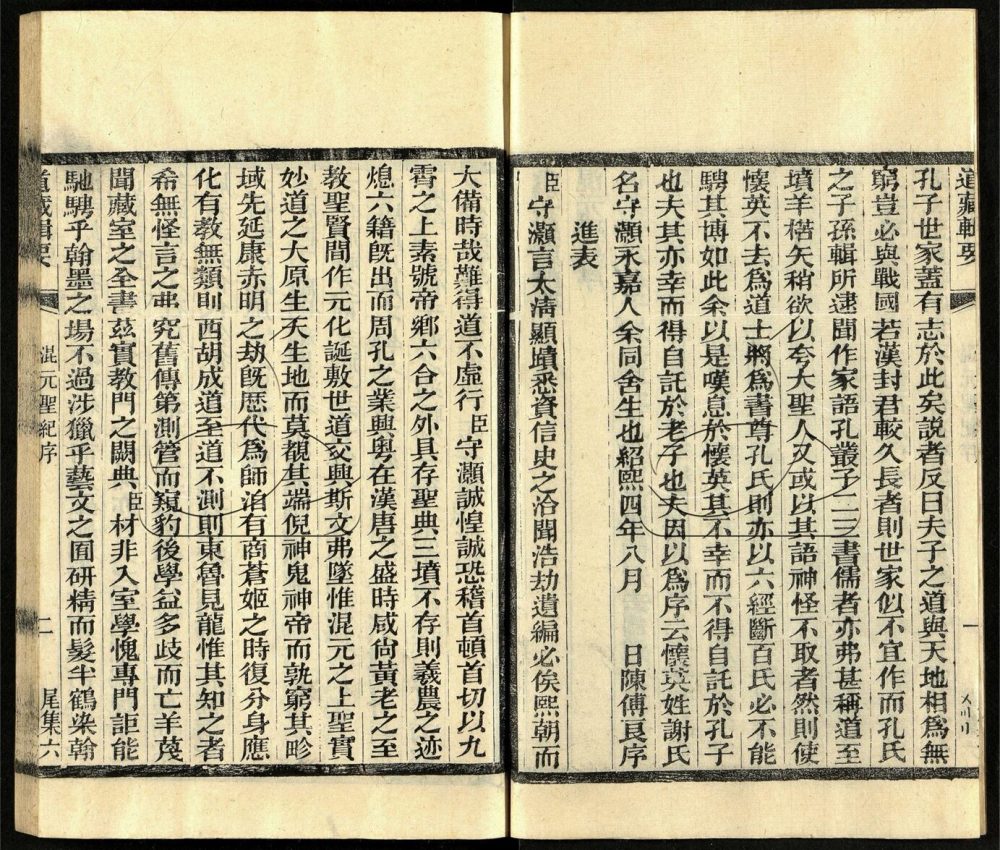 道藏輯要
孔子世家蓋有志於此矣說者反曰夫子之道與天地相爲無
窮豈必與戰國若漢封君較久長者則世家似不宜作而孔氏
之子孫輯所逮聞作家語孔叢子二三書儒者亦弗甚稱道至
墳羊楛矢稍欲以夸大聖人又或以其語神怪不取者然則使
懷英不去爲道士將爲書尊孔氏則亦以六經斷百氏必不能
騁其博如此余以是嘆息於懷英其不幸而不得自託於孔子
也夫其亦幸而得自託於老子也夫因以爲序云懷英姓謝氏
名守灝永嘉人余同舍生也紹熙四年八月 日陳傅良序
進表
臣守灝言太淸顯墳悉資信史之洽聞浩劫遺編必俟熙朝而
大備時哉難得道不虛行臣守灝誠惶誠恐稽首頓首切以九
霄之上素號帝鄉六合之外具存聖典三墳不存則羲農之迹
熄六籍旣出而周孔之業興粵在漢唐之盛時咸尙黃老之至
教聖賢間作元化誕敷世道交興斯文弗墜惟混元之上聖實
妙道之大原生天生地而莫覩其端倪神鬼神帝而孰窮其畛
域先延康赤明之劫旣歷代爲師洎有商蒼姬之時復分身應
化有教無類則西胡成道至道不測則東魯見龍惟其知之者
希無怪言之弗究舊傳第測管而窺豹後學益多歧而亡羊蔑
聞藏室之全書茲實教門之闕典臣材非入室學愧專門詎能
馳騁乎翰墨之場不過涉獵乎藝文之囿研精而髮半鶴染翰
道藏輯要 混元聖紀序 二 尾集六